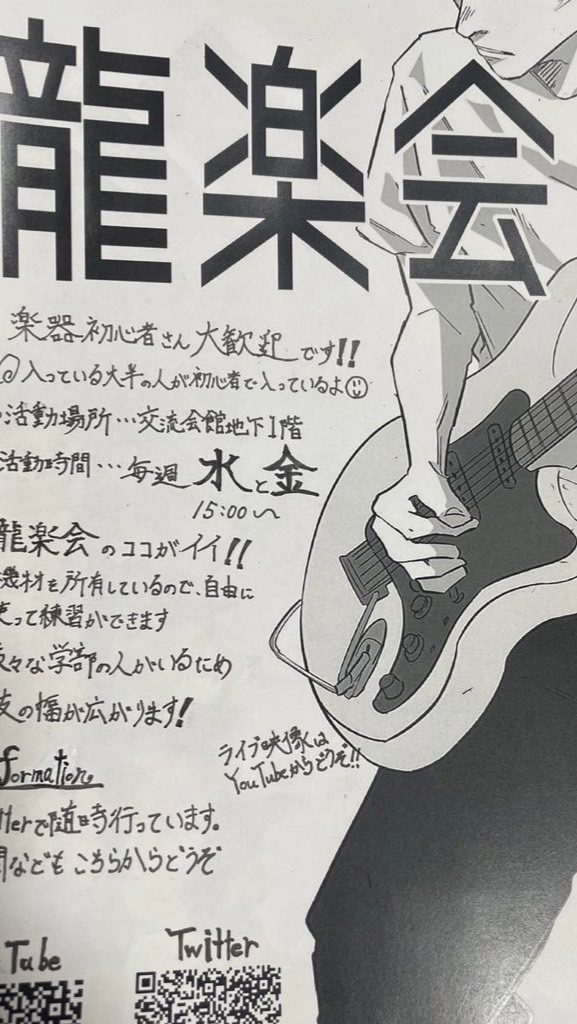 龍楽会
楽器初心者さん大歓迎です!!
入っている大半の人が初心者で入っているよ
活動場所…交流会館地下1階
活動時間…毎週 水と金
15:00〜
龍楽会のココがイイ!!
機材を所有しているので、自由に
使って練習ができます
々な学部の人がいるため
友の幅が広がります!
formation
ライブ映像は
YouTubeからどうぞ!!
tterで随時行っています。
などもこちらからどうぞ
Tube
Twitter